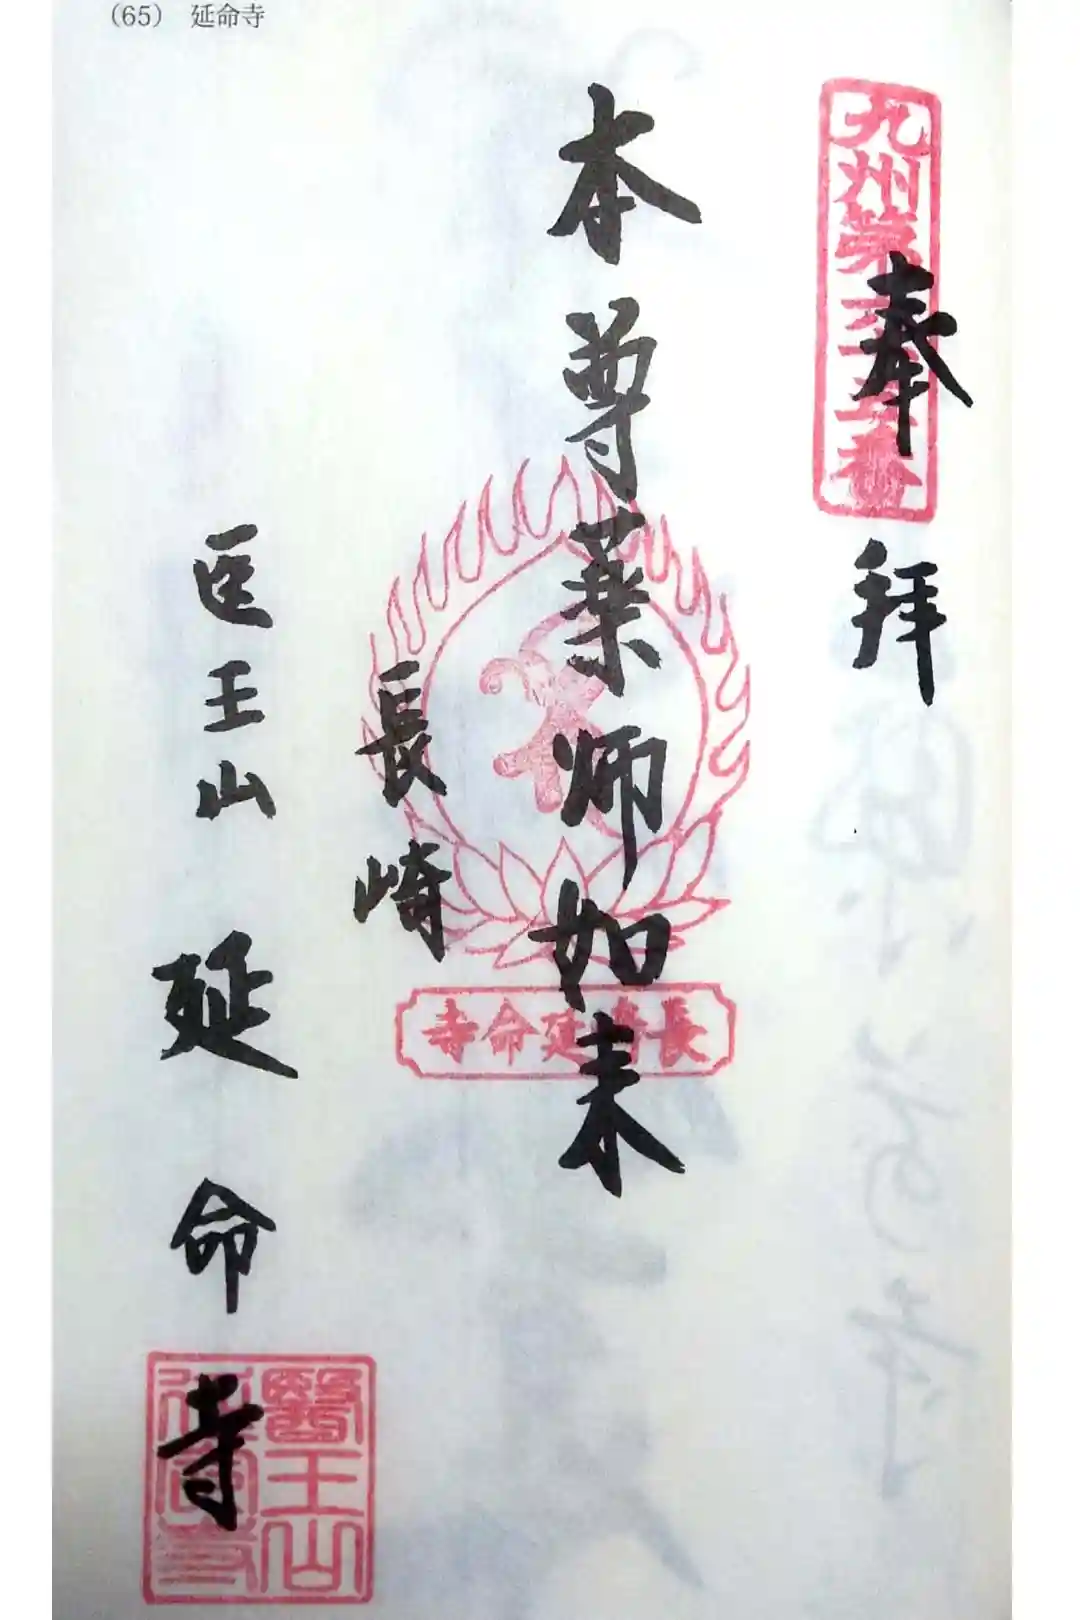 (65) 延命寺
九州第六十五番
奉拝
本尊薬師如来
長崎
長崎延命寺
医王山 延命寺
醫王山延命寺